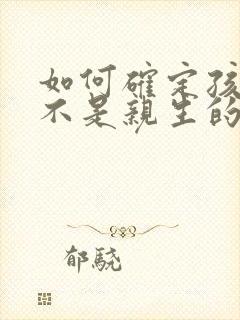 如何確定孩
不是親生的
郁驍